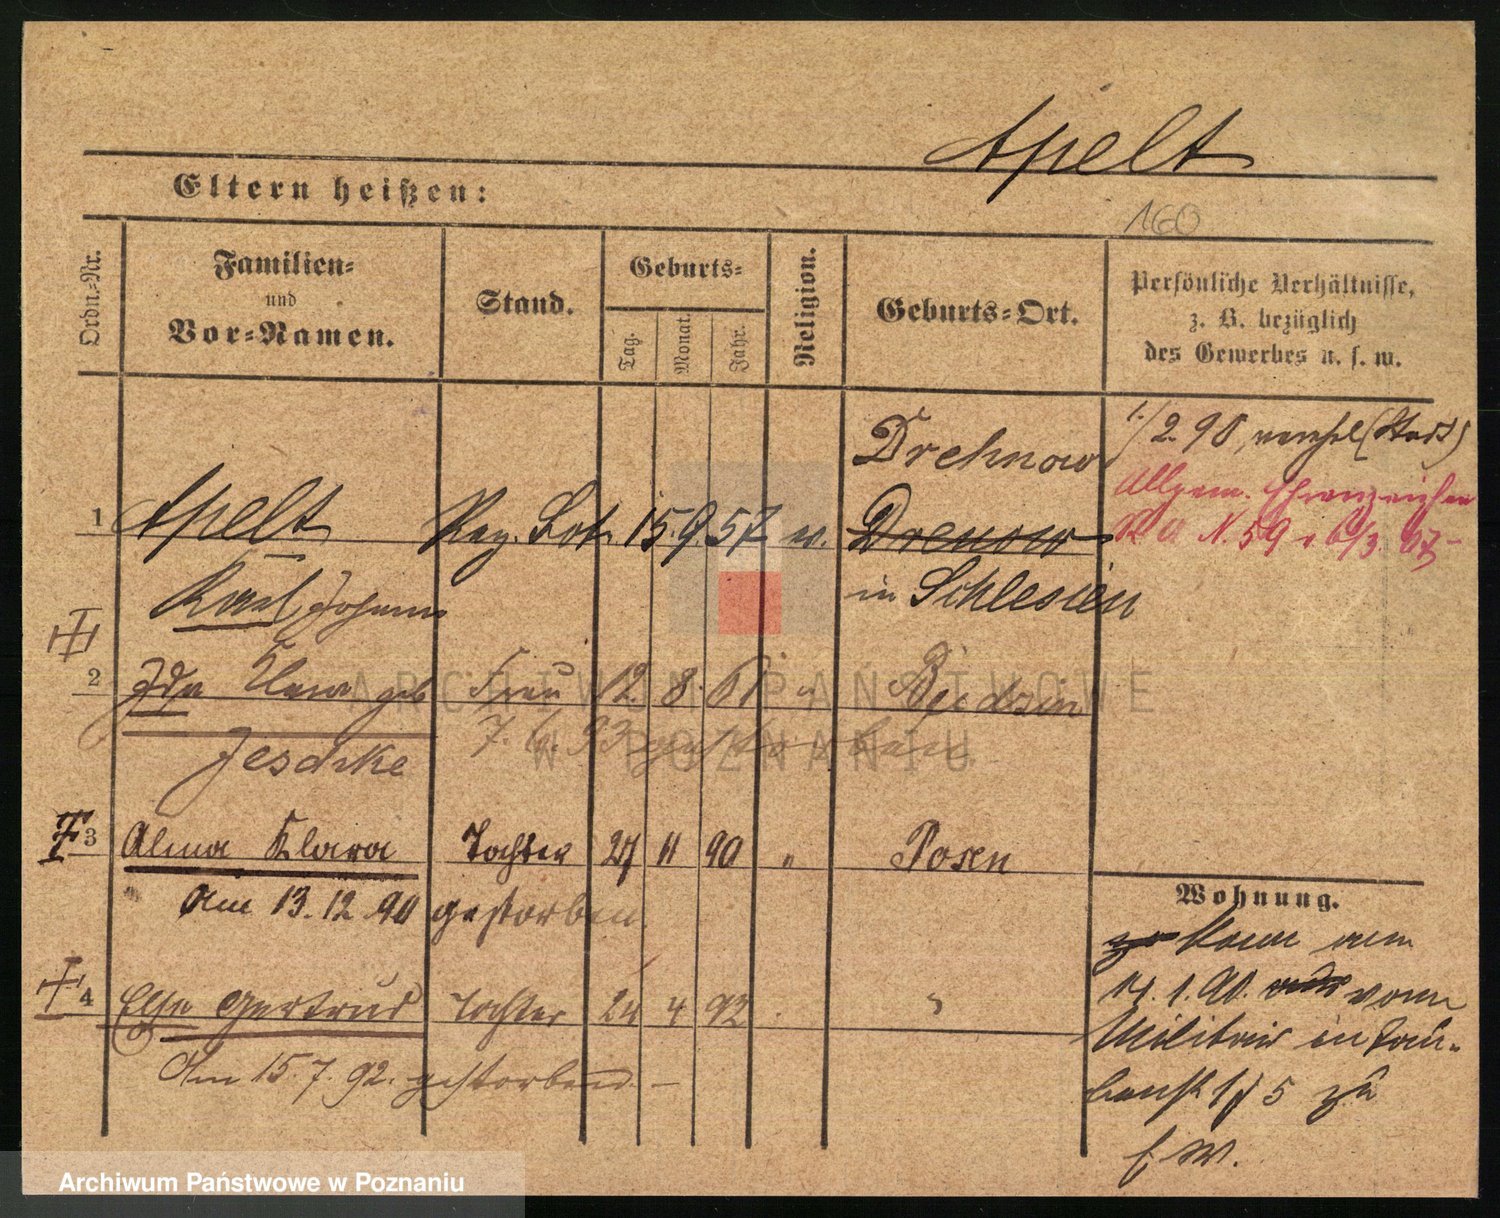 Apelt
Eltern heißen:
160
Ordn.-Nr.
Familien-
und
Vor-Namen.
Stand.
Geburts-
Tag.
Monat.
Jahr.
Religion.
Geburts-Ort.
Persönliche Verhältnisse,
z. B. bezüglich
des Gewerbes u. s. w.
Drehnow
1/2.98,
1 Apelt Reg. Bot. 15 9. 57 ev. Drenow
Allgem. Ehrenzeichen
Karl Johann in Schlesien
N. 59
2 Ida Clara geb Frau 12. 8. 61 " Bendzin
ARCHIWUM PAŃSTWOWE
W POZNANIU
Jeschke 7. 6. 93 gestorben
3 Alma Klara Tochter 27 11 90 " Posen
Am 13. 12. 90 gestorben
Wohnung.
zu Kam am
4 Else Gertrud Tochter 24 4 92 "
11. 1. 90. vom
Militair in Tau-
Am 15. 7. 92. gestorben. –
5 zu
f. W.
Archiwum Państwowe w Poznaniu